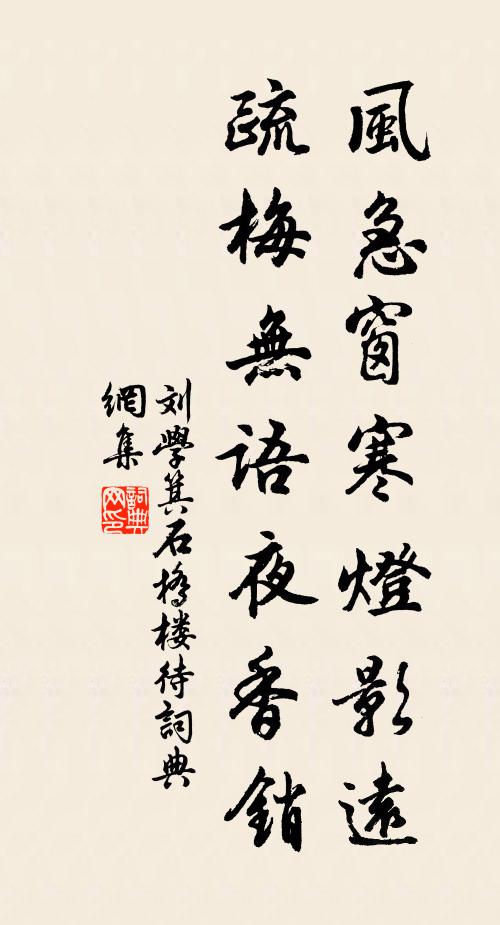 風急窗寒燈影遠
疏梅無語夜香銷
刘學箕石橋楼待詞典
網集
詞典
网印